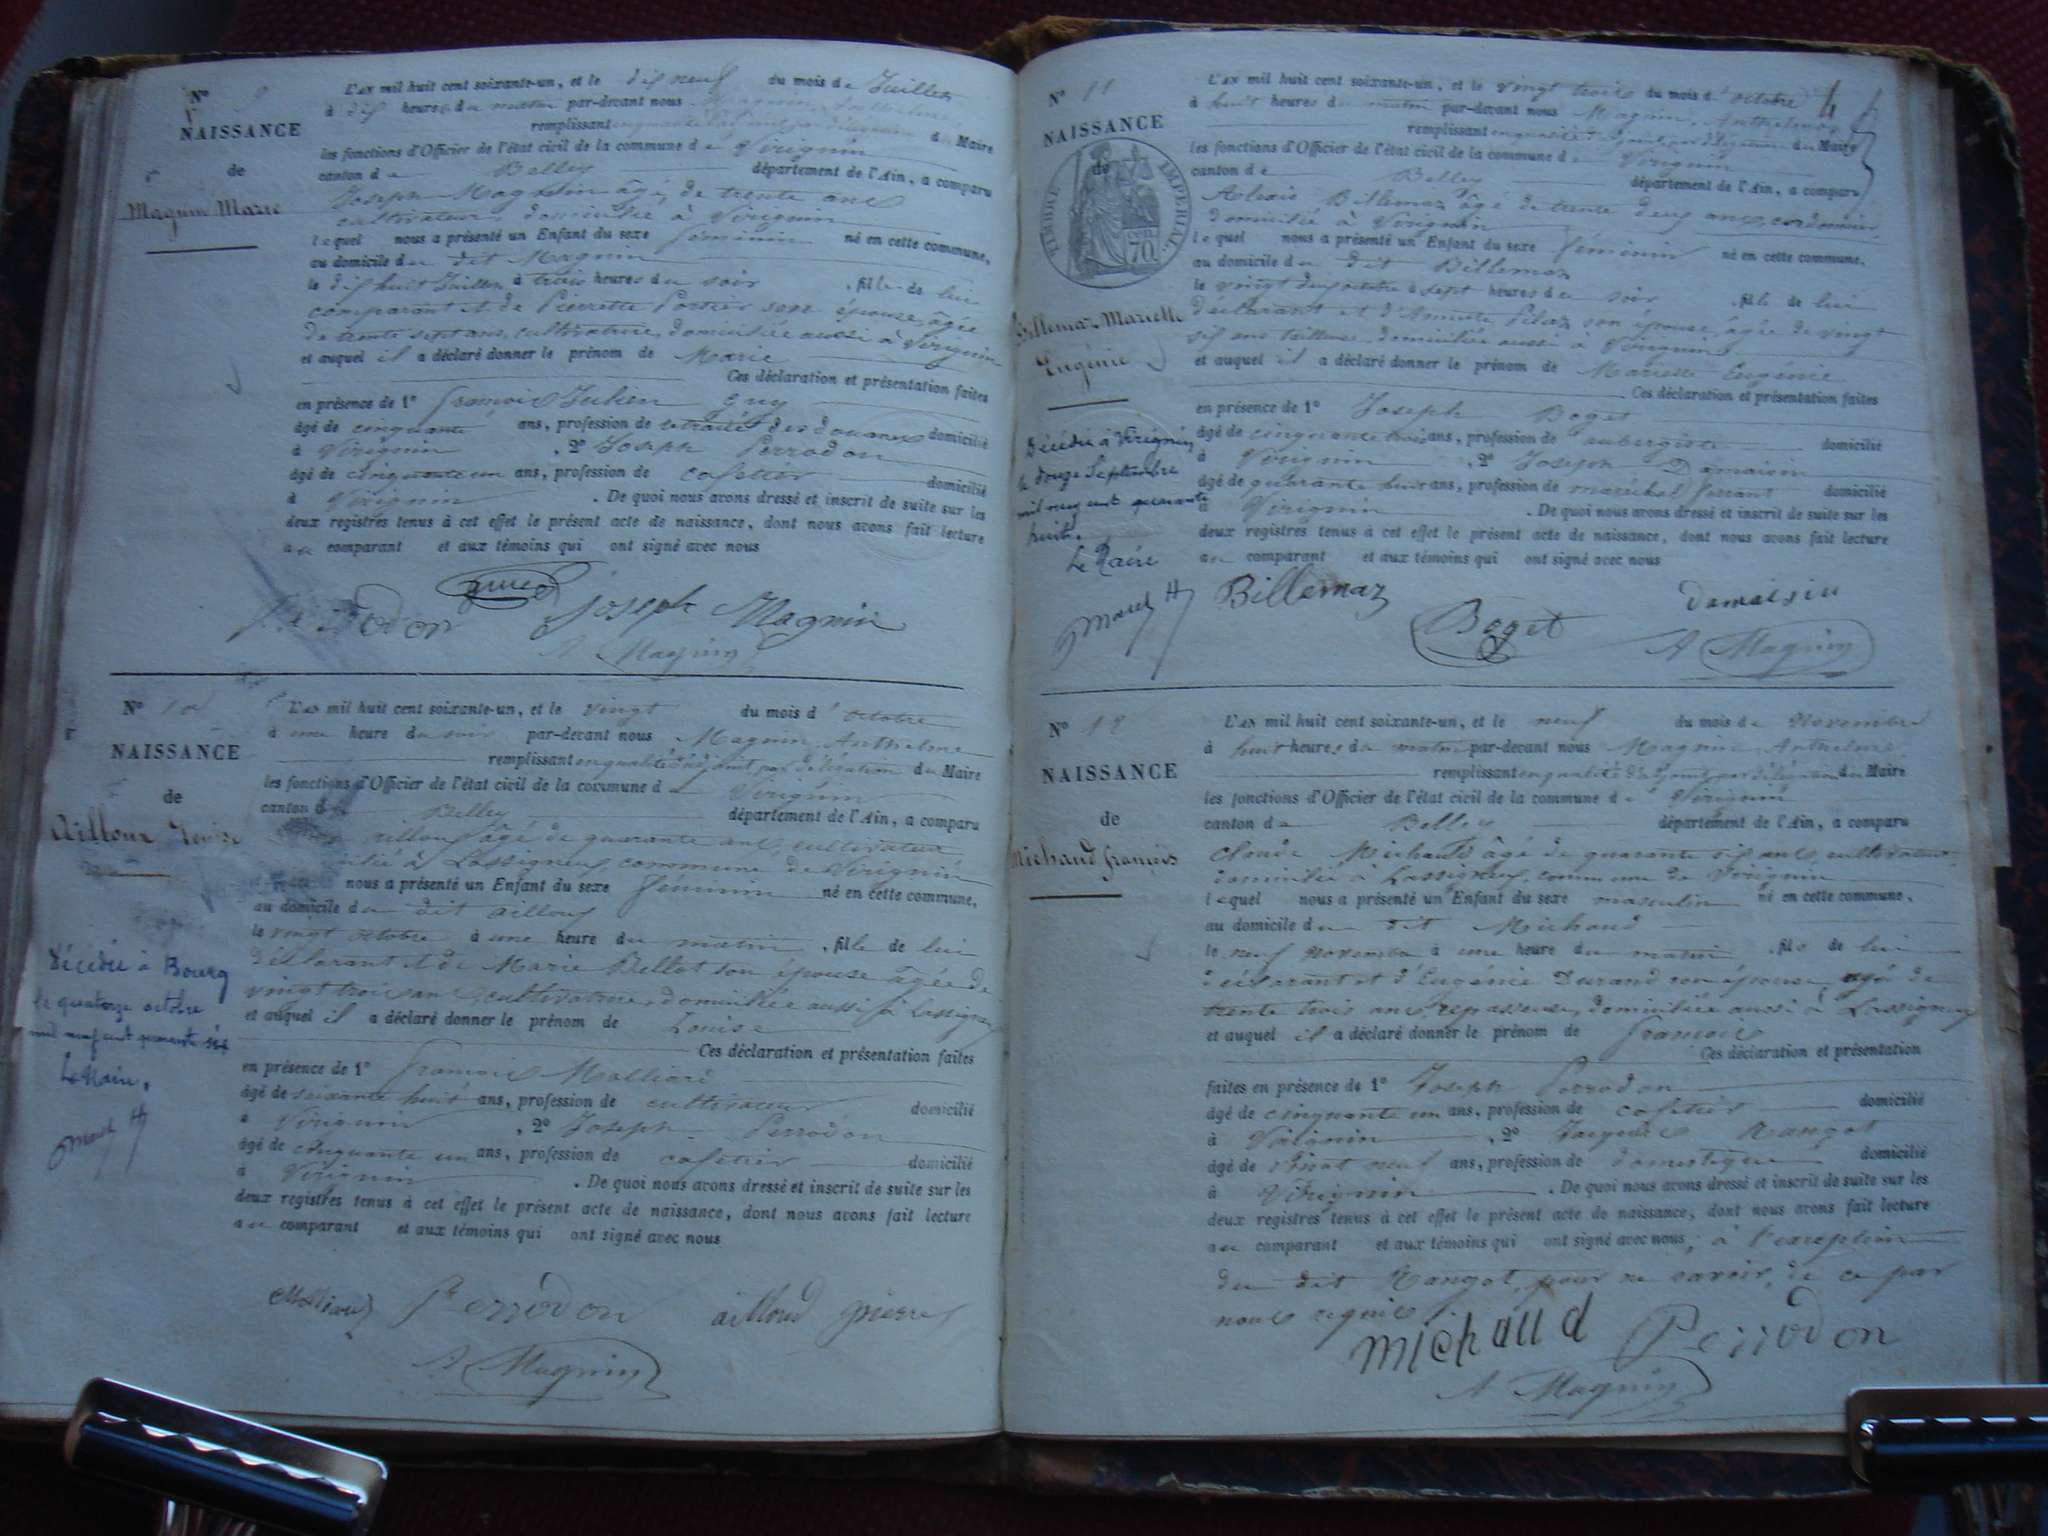 N° 9
NAISSANCE
de
Magnin Marie
L'AN mil huit cent soixante-un, et le dix neuf du mois de Juillet
à dix heures du matin par-devant nous Magnin, Anthelme
remplissant en qualité d'adjoint par délégation du Maire
les fonctions d'Officier de l'état civil de la commune de Virignin
canton de Belley département de l'Ain, a comparu
Joseph Magnin âgé de trente ans
cultivateur, domicilié à Virignin
lequel nous a présenté un Enfant du sexe féminin né en cette commune,
au domicile du dit Magnin
le dix huit Juillet à trois heures du soir, fille de lui
comparant et de Pierrette Portier son épouse, âgée
de trente sept ans, cultivatrice, domiciliée aussi à Virignin
et auquel il a déclaré donner le prénom de Marie
Ces déclaration et présentation faites
en présence de 1° françois Julien Guy
âgé de cinquante ans, profession de retraité des douanes domicilié
à Virignin, 2° Joseph Perrodon
âgé de cinquante un ans, profession de cafetier domicilié
à Virignin. De quoi nous avons dressé et inscrit de suite sur les
deux registres tenus à cet effet le présent acte de naissance, dont nous avons fait lecture
au comparant et aux témoins qui ont signé avec nous
Perrodon joseph Magnin
A Magnin
N° 10
NAISSANCE
de
Ailloux Louise
L'AN mil huit cent soixante-un, et le vingt du mois d'octobre
à une heure du soir par-devant nous Magnin, Anthelme
remplissant en qualité d'adjoint par délégation du Maire
les fonctions d'Officier de l'état civil de la commune de Virignin
canton de Belley département de l'Ain, a comparu
ailloux âgé de quarante ans, cultivateur
à Lassigneux, commune de Virignin
nous a présenté un Enfant du sexe féminin né en cette commune,
au domicile du dit ailloux
le vingt octobre à une heure du matin, fille de lui
déclarant et de Marie Bellet son épouse âgée de
vingt trois ans, cultivatrice, domiciliée aussi à Lassigneux
et auquel il a déclaré donner le prénom de Louise
Ces déclaration et présentation faites
en présence de 1° françois Molliard
âgé de soixante huit ans, profession de cultivateur domicilié
à Virignin, 2° Joseph Perrodon
âgé de cinquante un ans, profession de cafetier domicilié
à Virignin. De quoi nous avons dressé et inscrit de suite sur les
deux registres tenus à cet effet le présent acte de naissance, dont nous avons fait lecture
au comparant et aux témoins qui ont signé avec nous
Décédée à Bourg
le quatorze octobre
mil neuf cent quarante six
Le Maire,
Molliard Perrodon ailloud pierre
A Magnin
N° 11
NAISSANCE
de
TIMBRE IMPERIAL
70
Billemaz Mariette
Eugénie
L'AN mil huit cent soixante-un, et le vingt trois du mois d'octobre
à huit heures du matin par-devant nous Magnin, Anthelme
remplissant en qualité d'adjoint par délégation du Maire
les fonctions d'Officier de l'état civil de la commune de Virignin
canton de Belley département de l'Ain, a comparu
Alexis Billemaz âgé de trente deux ans, cordonnier
domicilié à Virignin
lequel nous a présenté un Enfant du sexe féminin né en cette commune,
au domicile du dit Billemaz
le vingt deux octobre à sept heures du soir, fille de lui
déclarant et d'Annette son épouse âgée de vingt
six ans tailleuse domiciliée aussi à Virignin
et auquel il a déclaré donner le prénom de Mariette Eugénie
Ces déclaration et présentation faites
en présence de 1° Joseph Boget
âgé de cinquante trois ans, profession de aubergiste domicilié
à Virignin, 2° Joseph Damaisin
âgé de quarante huit ans, profession de maréchal ferrant domicilié
à Virignin. De quoi nous avons dressé et inscrit de suite sur les
deux registres tenus à cet effet le présent acte de naissance, dont nous avons fait lecture
au comparant et aux témoins qui ont signé avec nous
Décédée à Virignin
le douze Septembre
mil neuf cent quarante
huit.
Le Maire
Billemaz Boget Damaisin
A Magnin
N° 12
NAISSANCE
de
Michaud françois
L'AN mil huit cent soixante-un, et le neuf du mois de Novembre
à huit heures du matin par-devant nous Magnin Anthelme
remplissant en qualité d'adjoint par délégation du Maire
les fonctions d'Officier de l'état civil de la commune de Virignin
canton de Belley département de l'Ain, a comparu
Claude Michaud âgé de quarante six ans, cultivateur
domicilié à Lassigneux, commune de Virignin
lequel nous a présenté un Enfant du sexe masculin né en cette commune,
au domicile du dit Michaud
le neuf novembre à une heure du matin, fils de lui
déclarant et d'Eugénie Durand son épouse, agé de
trente trois ans, repasseuse, domiciliée aussi à Lassigneux
et auquel il a déclaré donner le prénom de françois
Ces déclaration et présentation
faites en présence de 1° Joseph Perrodon
âgé de cinquante un ans, profession de cafetier domicilié
à Virignin, 2° Jacques Rangot
âgé de vingt neuf ans, profession de domestique domicilié
à Virignin. De quoi nous avons dressé et inscrit de suite sur les
deux registres tenus à cet effet le présent acte de naissance, dont nous avons fait lecture
au comparant et aux témoins qui ont signé avec nous, à l'exception
du dit Rangot, pour ne savoir, de ce par
nous requis.
Michaud Perrodon
A Magnin